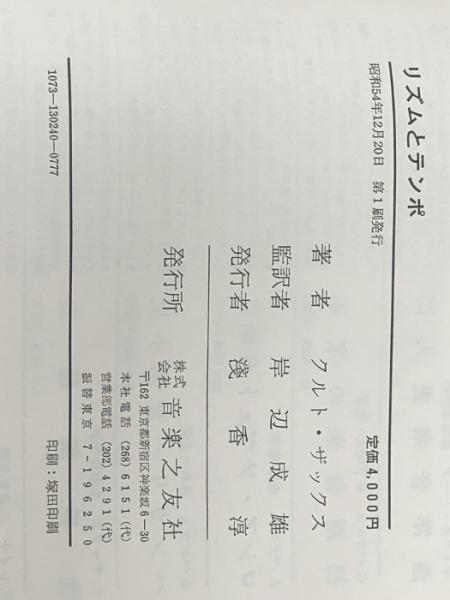 リズムとテンポ
昭和54年12月20日 第1刷発行
定価 4,000円
著者 クルト・ザックス
監訳者 岸辺成雄
発行者 淺香淳
発行所 株式会社 音楽之友社
〒162 東京都新宿区神楽坂6―30
本社電話 (268) 6151(代)
営業部電話 (202) 4291(代)
振替東京 7-196250
1073―130240―0777
印刷:塚田印刷